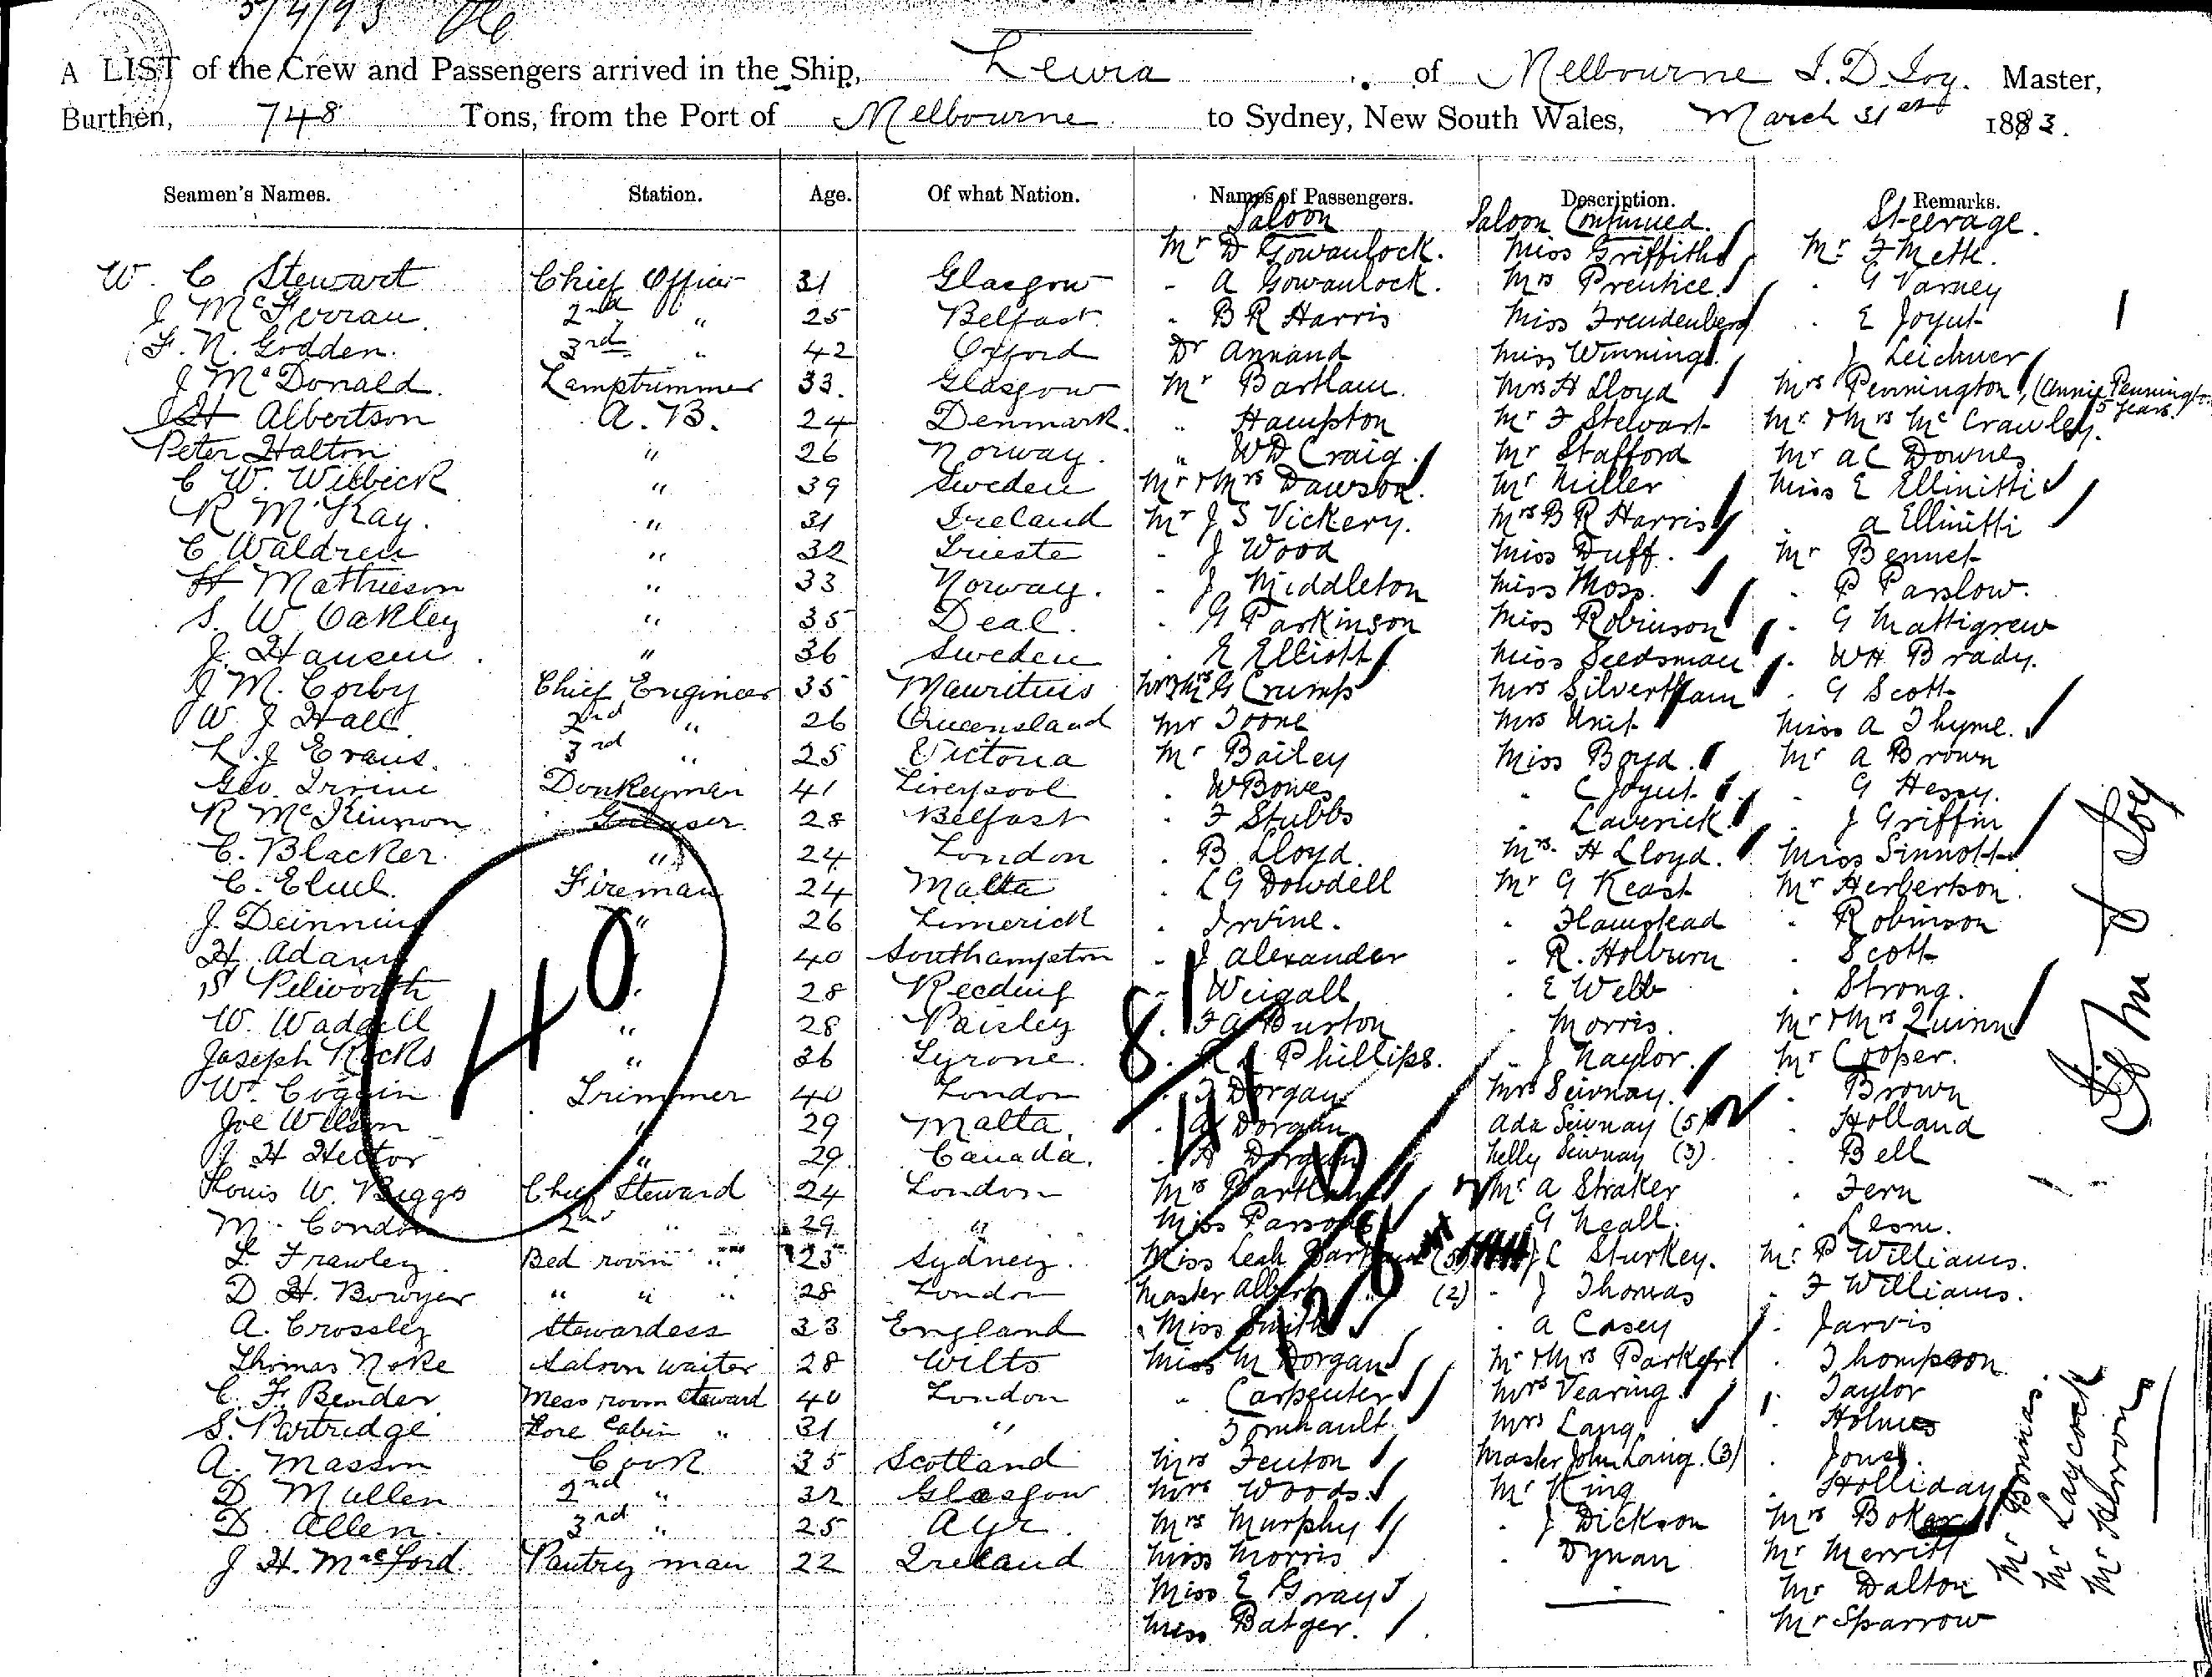 5/4/93
A LIST of the Crew and Passengers arrived in the Ship, of Melbourne J. D. Joy. Master,
Burthen, 748 Tons, from the Port of Melbourne to Sydney, New South Wales, March 31st 1893.
Seamen's Names. Station. Age. Of what Nation. Names of Passengers. Description. Remarks.
Saloon Saloon Continued. Steerage.
Mr D Gowanlock. Miss Griffiths Mr F Mette.
W. C Stewart Chief Officer 31 Glasgow - A Gowanlock. Mrs Prentice. . G Varney
J McFerran. 2nd " 25 Belfast. " B R Harris Miss Freudenberg . E Joyut
F. N. Godden. 3rd " 42 Oxford Dr Annand Miss Winning . J Leichner
J McDonald. Lamptrimmer 33. Glasgow Mr Bartlam. Mrs H Lloyd Mrs Pennington, (Annie Pennington 5 years.
H Albertson A. B. 24 Denmark. " Hampton Mr F Stewart Mr & Mrs McCrawley.
Peter Halton " 26 Norway. " W D Craig. Mr Stafford Mr A C Downes
C W. Wilbick " 39 Sweden Mr & Mrs Dawson. Mr Miller Miss E Ellinitti
R McKay. " 31 Ireland Mr J S Vickery. Mrs B R Harris . A Ellinitti
C Waldren " 32 Trieste - J Wood Miss Duff. Mr Bennet
H Mathieson " 33 Norway. - J Middleton Miss Moss. . P Parslow.
S. W. Oakley " 35 Deal. . G Parkinson Miss Robinson . G Mattigrew
J. Hansen. " 36 Sweden . E Elliott Miss Seedsman . W H Brady.
J M. Corby Chief Engineer 35 Mauritius Mr & Mrs G Crump Mrs Silvertham . G Scott
W. J Hall 2nd " 26 Queensland Mr Toone Mrs Unit Miss A Thyme.
L. J. Evans. 3rd " 25 Victoria Mr Bailey Miss Boyd. Mr A Brown
Geo. Irvine Donkeyman 41 Liverpool . W Bowes " C Joyut . G Hessy.
R McKinnon Greaser 28 Belfast . F Stubbs " Laverick . J Griffin
C. Blacker. " 24 London . B Lloyd. Mrs. H Lloyd. Miss Sinnott
C. Fireman 24 Malta . L G Dowdell Mr G Keast Mr Herbertson.
J. Deinning " 26 Limerick . Irvine. " Flamstead . Robinson
H. Adams 40 Southampton - J Alexander - R. Holburn . Scott
28 Reeding - Weigall . E Webb . Strong.
W. Waddell " 28 Paisley . F A Burton . Morris. Mr & Mrs Quinn
Joseph Rocks " 36 Tyrone. . Phillips. - J Naylor. Mr Cooper.
Wm Coggin Trimmer 40 London . J Dorgan Mrs Seivnay. . Brown
Joe Wilson " 29 Malta. . Dorgan Ada Seivnay (5) . Holland
J H Hector " 29. Canada. . Dorgan Nelly Seivnay (3). . Bell
Louis W. Biggs Chief Steward 24 London Mrs Bartlam Mr A Straker . Fern
M. Condon 2nd " 29 " Miss Parsons . G Neall. .
L. Frawley. Bed room " 25 Sydney. Miss Leah Bartlam (5) J C Sturkey. Mr P Williams.
D. H. Bowyer " " " 28 London Master Albert (2) - J Thomas . F Williams.
A. Crossley Stewardess 33 England Miss Smith . A Casey . Jarvis
Thomas Noke Saloon waiter 28 Wilts Miss M Dorgan Mr & Mrs Parker . Thompson
C. F. Bender Mess room Steward 40 London " Carpenter Mrs Vearing . Taylor
S. Partridge Fore Cabin " 31 " Mrs Lang . Holmes
A. Masson Cook 35 Scotland Mrs Fenton Master John Laing. (3) . Jones.
D. Mullen 2nd " 32 Glasgow Mrs Woods. Mr King . Holliday
D. Allen. 3rd " 25 Ayr. Mrs Murphy . J Dickson Mrs Boker
J. H. Pantry man 22 Ireland Miss Morris . Dynan Mr Merritt
Miss E Gray Mr Dalton
Miss Batger. Mr Sparrow
40
81
Mr Bonnias.
Mr Laycock